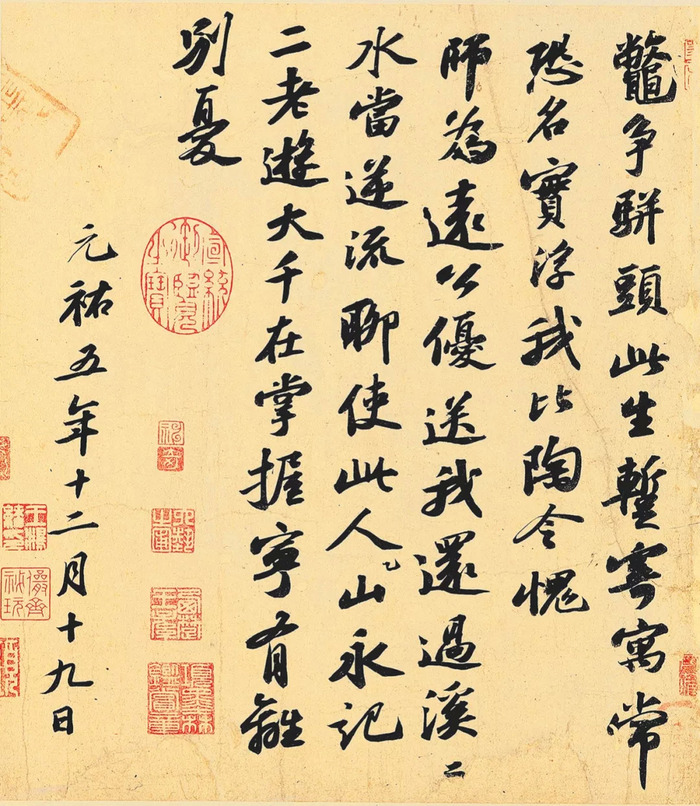 鼇争駢頭此生暫寄寓常
恐名實浮我比陶令愧
師為遠公優送我還過溪〻
水當逆流聊使此人山永記
二老遊大千在掌握寧有離
別憂
宣統御覽之寶
項墨林鑑賞章
元祐五年十二月十九日